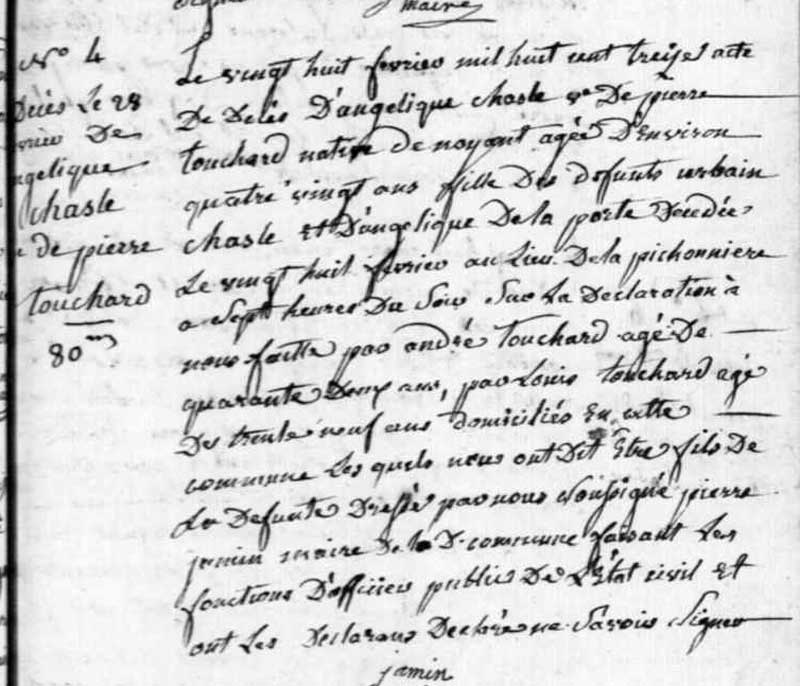 maire
N° 4
Décès Le 28
De
ngelique
chasle
de pierre
touchard
80 ans
Le vingt huit fevrier mil huit cent treize acte
De Décès D'angelique chasle ve De pierre
touchard native de noyant agée D'Environ
quatre vingt ans fille Des defunts urbain
chasle et D'angelique De la porte Décédée
Le vingt huit fevrier au Lieu De la pichonniere
a Sept heures Du Soir Sur La Declaration à
nous faitte par andré touchard agé De
quarante Deux ans, par Louis touchard agé
De trente neuf ans domiciliés En cette
commune Les quels nous ont Dit Être fils De
La Defunte Dressé par nous Soussigné pierre
jamin maire De la De commune faisant Les
fonctions D'officier public De L'État civil Et
ont Les Declarans Declaré ne Savoir Signer
jamin